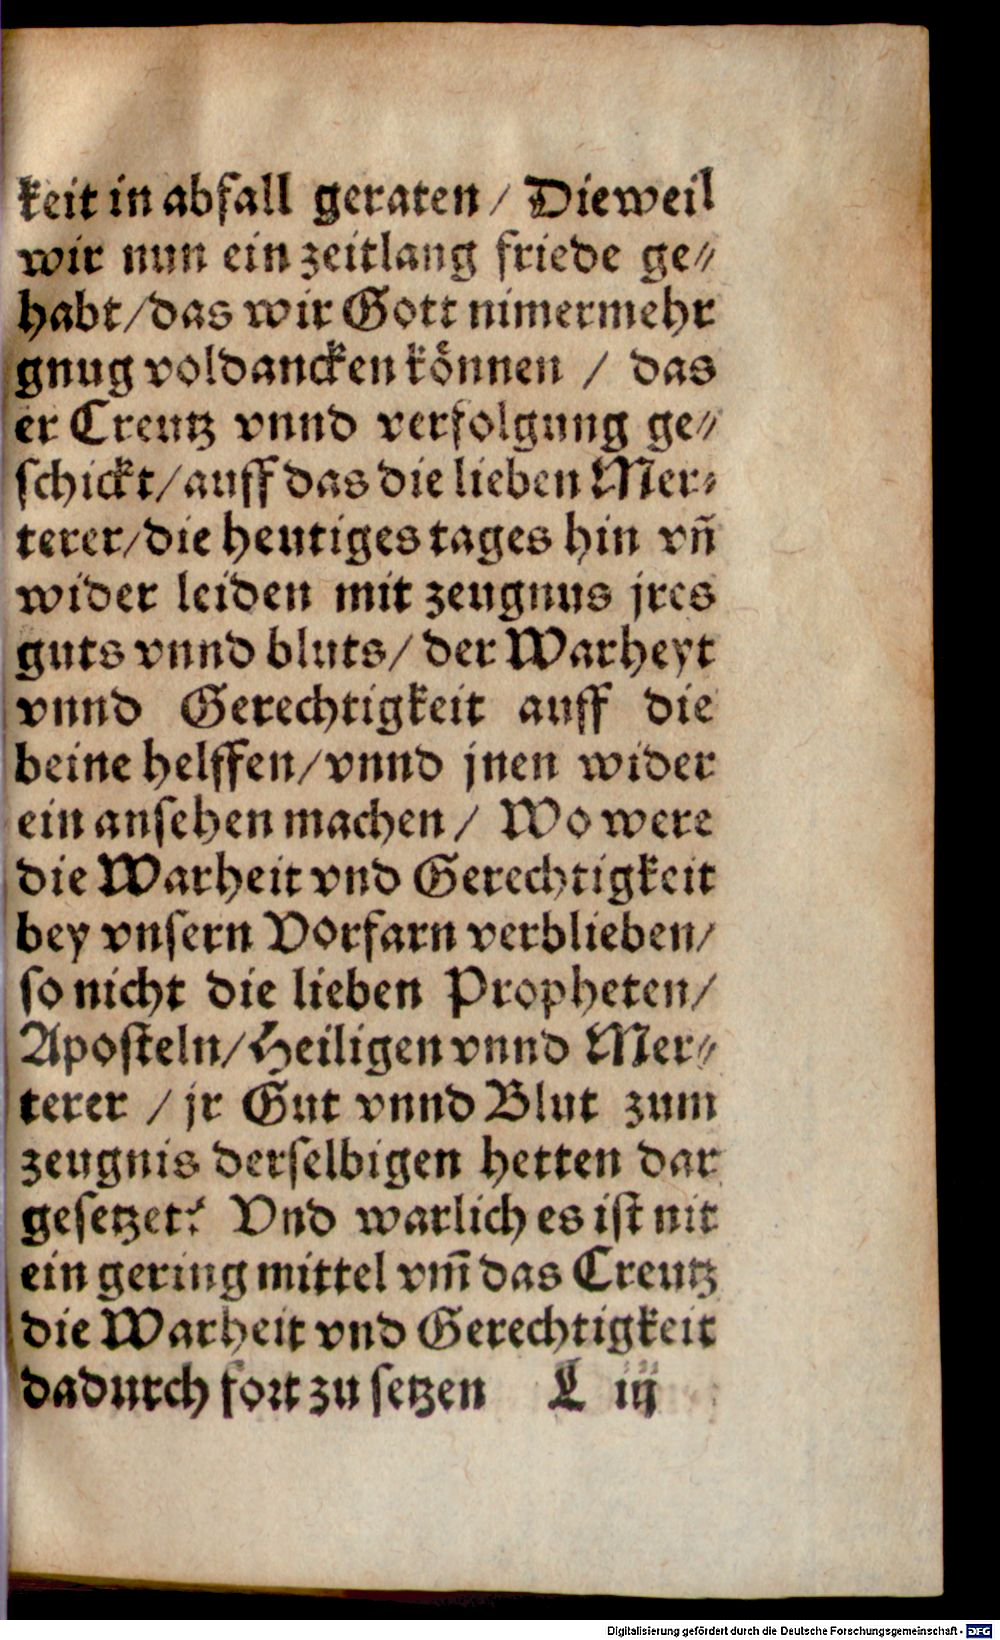 keit in abfall geraten / Dieweil
wir nun ein zeitlang friede ge⸗
habt / das wir Gott nimermehr
gnug voldancken koͤnnen / das
er Creutz vnnd verfolgung ge⸗
schickt / auff das die lieben Mer⸗
terer / die heutiges tages hin vñ
wider leiden mit zeugnus jres
guts vnnd bluts / der Warheyt
vnnd Gerechtigkeit auff die
beine helffen / vnnd jnen wider
ein ansehen machen / Wo were
die Warheit vnd Gerechtigkeit
bey vnsern Vorfarn verblieben /
so nicht die lieben Propheten /
Aposteln / Heiligen vnnd Mer⸗
terer / jr Gut vnnd Blut zum
zeugnis derselbigen hetten dar
gesetzet? Vnd warlich es ist nit
ein gering mittel vm̃ das Creutz
die Warheit vnd Gerechtigkeit
dadurch fort zu setzen L iij
Digitalisierung gefördert durch die Deutsche Forschungsgemeinschaft - DFG